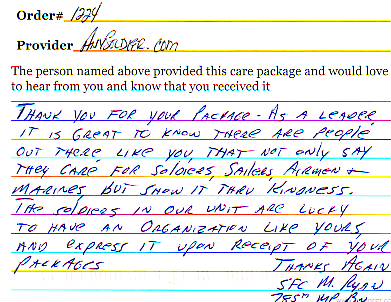 Order# 1224
Provider AnySoldier.com
The person named above provided this care package and would love
to hear from you and know that you received it
THANK YOU FOR YOUR PACKAGE - AS A LEADER,
IT IS GREAT TO KNOW THERE ARE PEOPLE
OUT THERE LIKE YOU THAT NOT ONLY SAY
THEY CARE FOR SOLDIERS, SAILORS, AIRMEN +
MARINES BUT SHOW IT THRU KINDNESS.
THE SOLDIERS IN OUR UNIT ARE LUCKY
TO HAVE AN ORGANIZATION LIKE YOURS,
AND EXPRESS IT UPON RECEIPT OF YOUR
PACKAGES THANKS AGAIN
SFC M. RYAN
MP BN